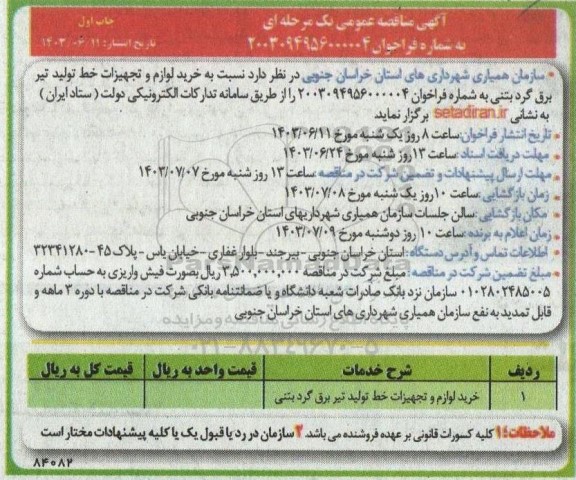 آگهی مناقصه عمومی یک مرحله ای
چاپ اول
به شماره فراخوان ۲۰۰۳۰۹۴۹۵۶۰۰۰۰۰۴
تاریخ انتشار: ۱۴۰۳/۰۶/۱۱
• سازمان همیاری شهرداری های استان خراسان جنوبی در نظر دارد نسبت به خرید لوازم و تجهیزات خط تولید تیر
برق گرد بتنی به شماره فراخوان ۲۰۰۳۰۹۴۹۵۶۰۰۰۰۰۴ را از طریق سامانه تدارکات الکترونیکی دولت ( ستاد ایران )
به نشانی setadiran.ir برگزار نماید.
• تاریخ انتشار فراخوان: ساعت ۸ روز یک شنبه مورخ ۱۴۰۳/۰۶/۱۱
• مهلت دریافت اسناد: ساعت ۱۳ روز شنبه مورخ ۱۴۰۳/۰۶/۲۴
• مهلت ارسال پیشنهادات و تضمین شرکت در مناقصه: ساعت ۱۳ روز شنبه مورخ ۱۴۰۳/۰۷/۰۷
• زمان بازگشایی: ساعت ۱۰ روز یک شنبه مورخ ۱۴۰۳/۰۷/۰۸
• مکان بازگشایی: سالن جلسات سازمان همیاری شهرداریهای استان خراسان جنوبی
• زمان اعلام به برنده: ساعت ۱۰ روز دوشنبه مورخ ۱۴۰۳/۰۷/۰۹
• اطلاعات تماس و آدرس دستگاه: استان خراسان جنوبی - بیرجند - بلوار غفاری - خیابان یاس - پلاک ۴۵ - ۳۲۳۴۱۲۸۰
• مبلغ تضمین شرکت در مناقصه: مبلغ شرکت در مناقصه ۳,۵۰۰,۰۰۰,۰۰۰ ریال بصورت فیش واریزی به حساب شماره
۰۱۰۲۸۰۲۴۸۵۰۰۵ سازمان نزد بانک صادرات شعبه دانشگاه و یا ضمانتنامه بانکی شرکت در مناقصه با دوره ۳ ماهه و
قابل تمدید به نفع سازمان همیاری شهرداری های استان خراسان جنوبی
پایگاه اطلاع رسانی مناقصه و مزایده
۰۲۱-۸۸۳۴۹۶۷۰-۵
ردیف شرح خدمات قیمت واحد به ریال قیمت کل به ریال
۱ خرید لوازم و تجهیزات خط تولید تیر برق گرد بتنی
ملاحظات: ۱ کلیه کسورات قانونی بر عهده فروشنده می باشد. ۲ سازمان در رد یا قبول یک یا کلیه پیشنهادات مختار است
۸۴۰۸۲